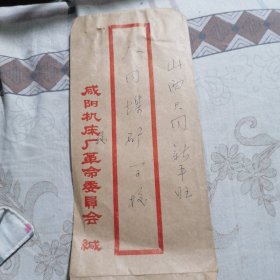 山西大同新平旺
大同煤矿一校
咸阳机床厂革命委员会 缄